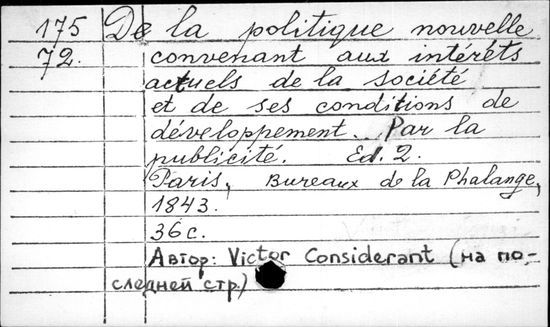 175 De la politique nouvelle
72. convenant aux intérêts
actuels de la société
et de ses conditions de
développement. Par la
publicité. Ed. 2.
Paris, Bureaux de la Phalange,
1843.
36 c.
Автор: Victor Considerant (на по-
следней стр.)